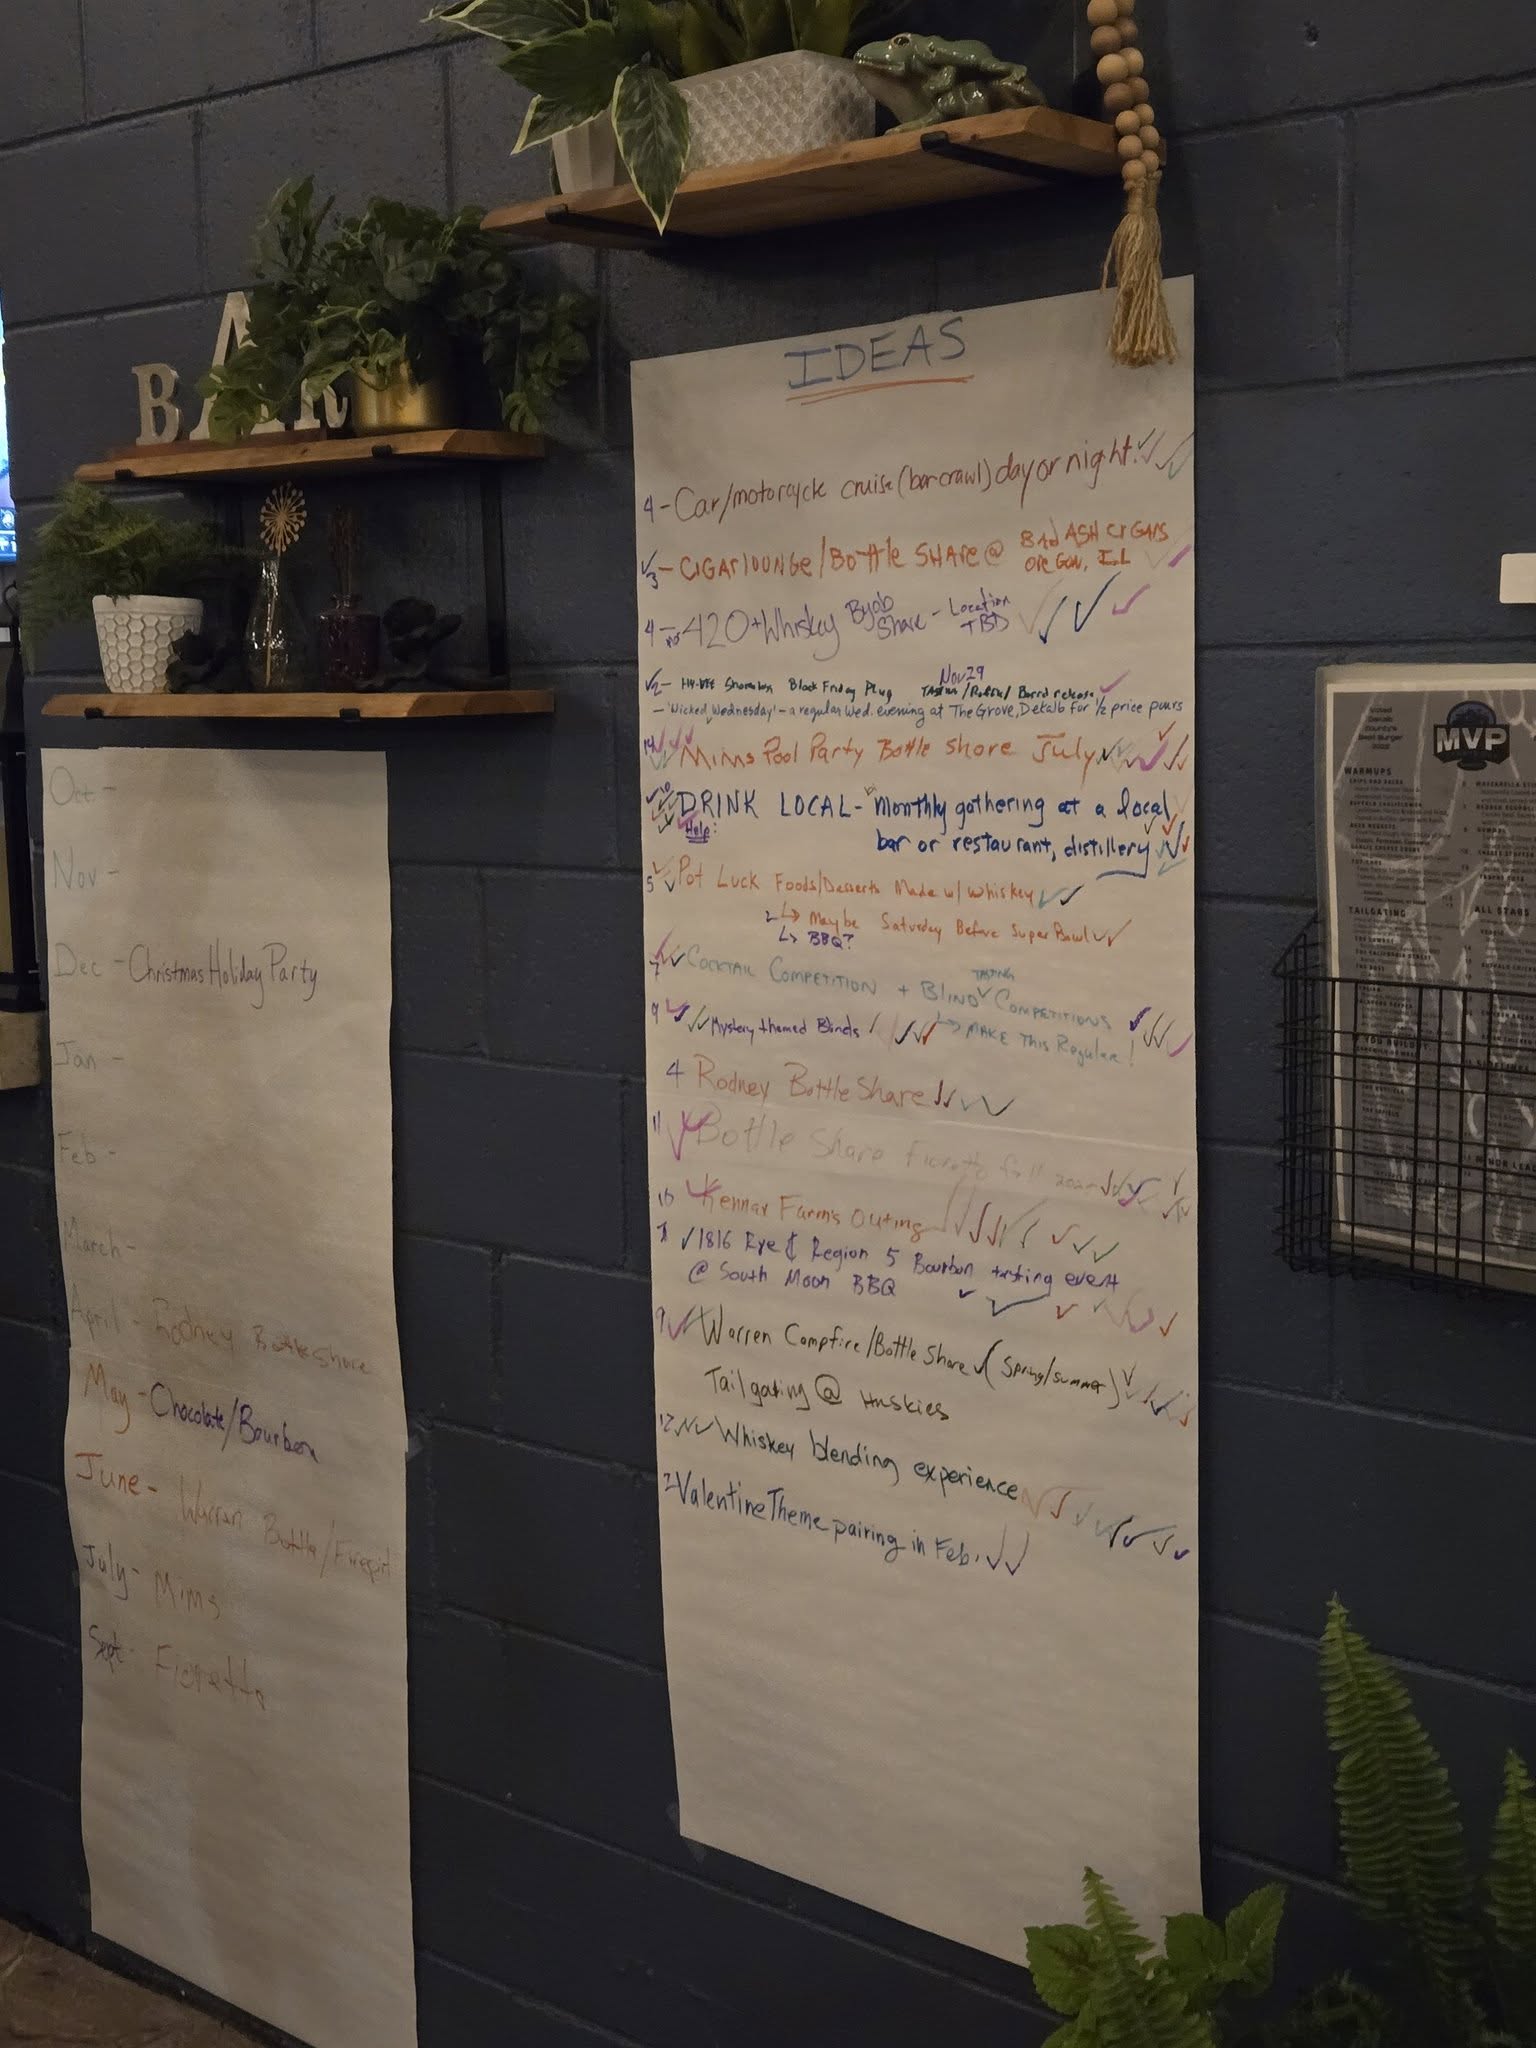 BAR
Oct -
Nov -
Dec - Christmas Holiday Party
Jan -
Feb -
March -
April - Rodney Bottle Share
May - Chocolate/Bourbon
June - Warren Bottle/Firepit
July - Mims
Sept - Fioretto
IDEAS
4 - Car/motorcycle cruise (barcrawl) day or night.
3 - CIGAR LOUNGE/BOttle SHARE @ Bad ASH CIGARS
OREGON, IL
4 - 420+Whiskey Byob Share - Location TBD
2 - HY-VEE Black Friday Plug Nov 29
- 'Wicked Wednesday' - a regular Wed. evening at The Grove, Dekalb for 1/2 price pours
14 Mims Pool Party Bottle Share July
10 DRINK LOCAL - Monthly gathering at a local
Help:
bar or restaurant, distillery
5 Pot Luck Foods/Desserts Made w/ Whiskey
2 ↳ Maybe Saturday Before Super Bowl
↳ BBQ?
7 COCKTAIL COMPETITION + BLIND TASTING COMPETITIONS
↳ MAKE This Regular!
9 Mystery themed Blinds
4 Rodney Bottle Share
11 Bottle Share Fioretto fall
10 Kennay Farms Outing
1816 Rye & Region 5 Bourbon tasting event
@ South Moon BBQ
9 Warren Campfire/Bottle Share (Spring/summer)
Tailgating @ Huskies
12 Whiskey blending experience
2 Valentine Theme pairing in Feb.
MVP
WARMUPS
TAILGATING
ALL STARS